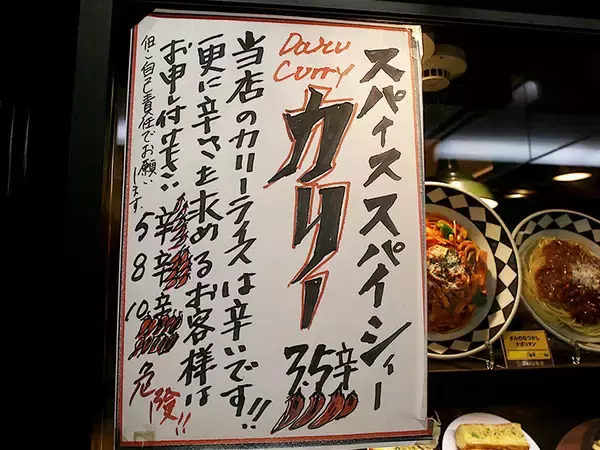 スパイススパイシィー
Daru
Curry
カリー
3.5辛
当店のカリーライスは辛いです!!
更に辛さを求めるお客様は
お申し付け下さい
但し自己責任でお願い
します。
5辛
8辛
10辛
危険!!
ナポリタン